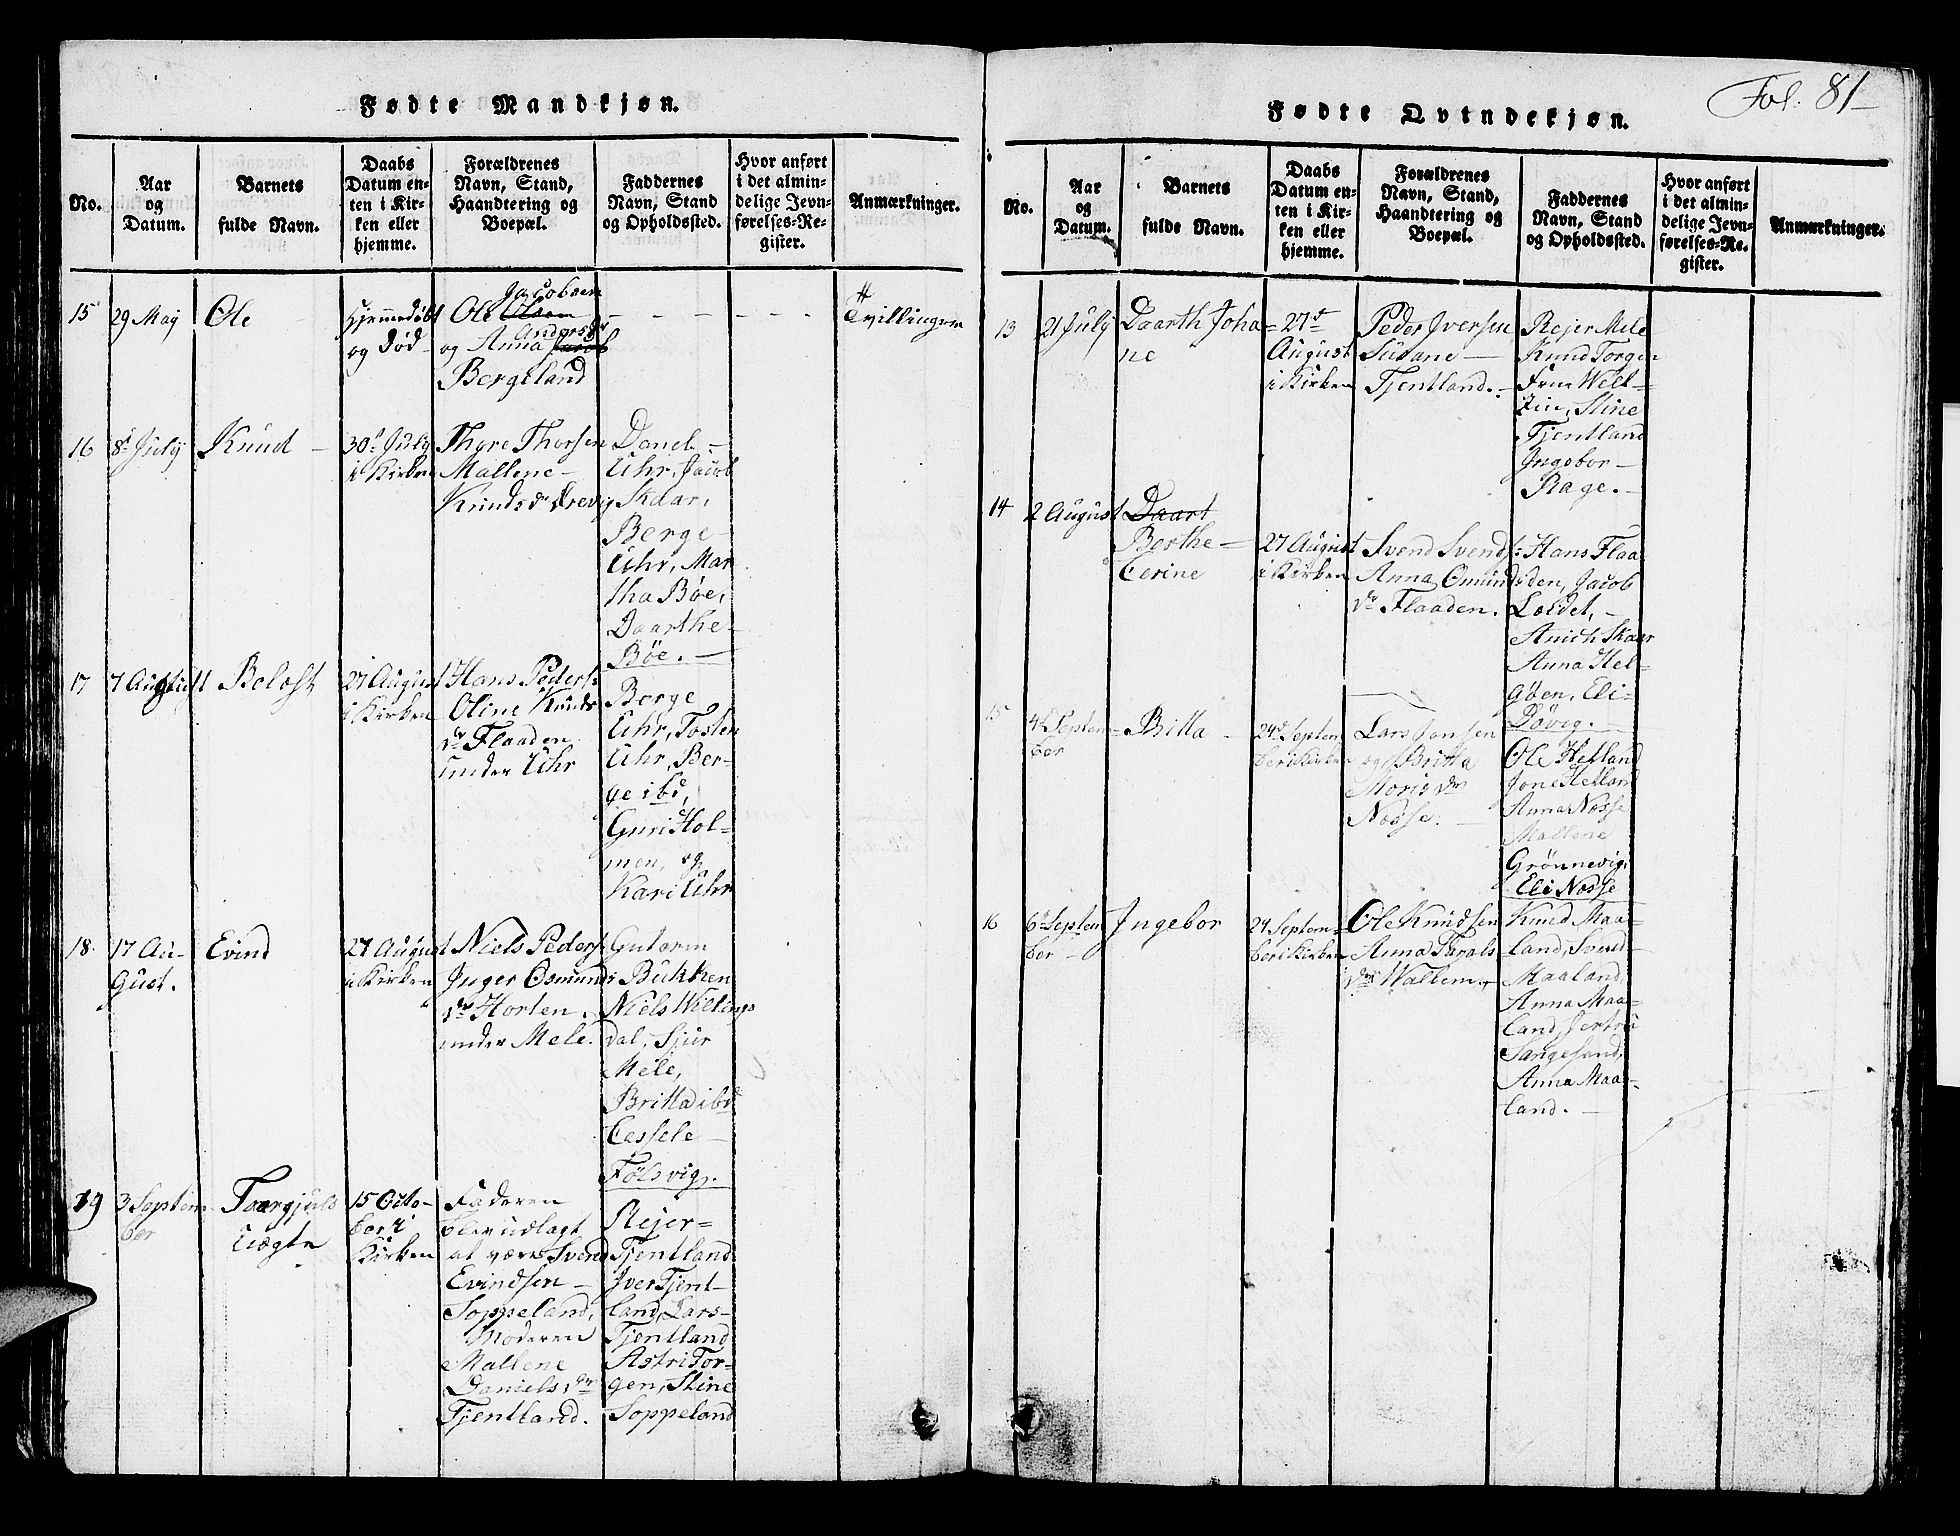 Fødte Mandkjøn.
No.
Aar
og
Datum.
Barnets
fulde Navn.
Daabs
Datum en-
ten i Kir-
ken eller
hjemme.
Forældrenes
Navn, Stand,
Haandtering og
Boepæl.
Faddernes
Navn, Stand
og Opholdssted.
Hvor anført
i det almin-
delige Jevn-
førelses-Re-
gister.
Anmærkninger.
15
29 Maj
Ole
Hjemmedøbt
og død
Jacobsen
Ole Olsen
Anders dr
og Anna Jacob
Bergeland
Tvillinger
16
8de July
Knud
30d July
i Kirken
Thore Thorsen
Mallene
Knudsdr Drevig
Danel
Uhr, Jacob
Skaar,
Berge
Uhr, Mar
tha Bøe,
Daarthe
Bøe.
17
7 August
27 August
i Kirken
Hans Peders:
Oline Knuds
dr Flaaden
under Uhr
Berge
Uhr, Tosten
Uhr, Ber-
ge ibd,
Guri Hol-
men, og
Kari Uhr
18
17 Au-
gust.
Evind
27 August
i Kirken
Niels Peders:
Inger Osmunds
dr Horten
under Mele.
Gutorm
Bukken
Niels Willings
dal, Sjur
Mele,
Britta ibd
Cessele
Følsvig.
19
3 Septem
ber
15 Octo-
ber i
Kirken
Faderen
blev udlagt
at være Svend
Evindsen
Soppeland,
Moderen
Mallene
Daniels dr
Tjentland.
Rejer
Tjentland
Iver Tjent-
land, Lars
Tjentland
Astri Tor-
gen, Stine
Soppeland
Fol: 81
Fødte Qvindekjøn.
No.
Aar
og
Datum.
Barnets
fulde Navn.
Daabs
Datum en-
ten i Kir-
ken eller
hjemme.
Forældrenes
Navn, Stand,
Haandtering og
Boepæl.
Faddernes
Navn, Stand
og Opholdssted.
Hvor anført
i det almin-
delige Jevn-
førelses-Re-
gister.
Anmærkninger.
13
21 July
Daarth Joha
ne
27d
August
i Kirken
Peder Iversen
Susane
Tjentland.
Rejer Mele
Knud Torgen
Stine
Tjentland
Ingebor
Rage.
14
2 August
Daart
Berthe
Cerine
27 August
i Kirken
Svend Svends:
Anna Omunds
dr Flaaden.
Hans Flaa
den, Jacob
Loedet,
Anich Skaar
Anna Hel-
gøen, Eli
Døvig.
15
4d Septem
ber
Britta
24d Septem
ber i Kirken
Lars Jonsen
og Britta
Moris dr
Nosse.
Ole Hetland
Jone Hetland
Anna Nosse
Mallene
Grønnevig,
Eli Nosse
16
6d Septem
ber
Ingebor
24 Septem-
ber i Kirken
Ole Knudsen
Anna Tarals
dr Wallem.
Knud Maa-
land, Svend
Maaland,
Anna Maa-
land,
Sangesand,
Anna Maa-
land.